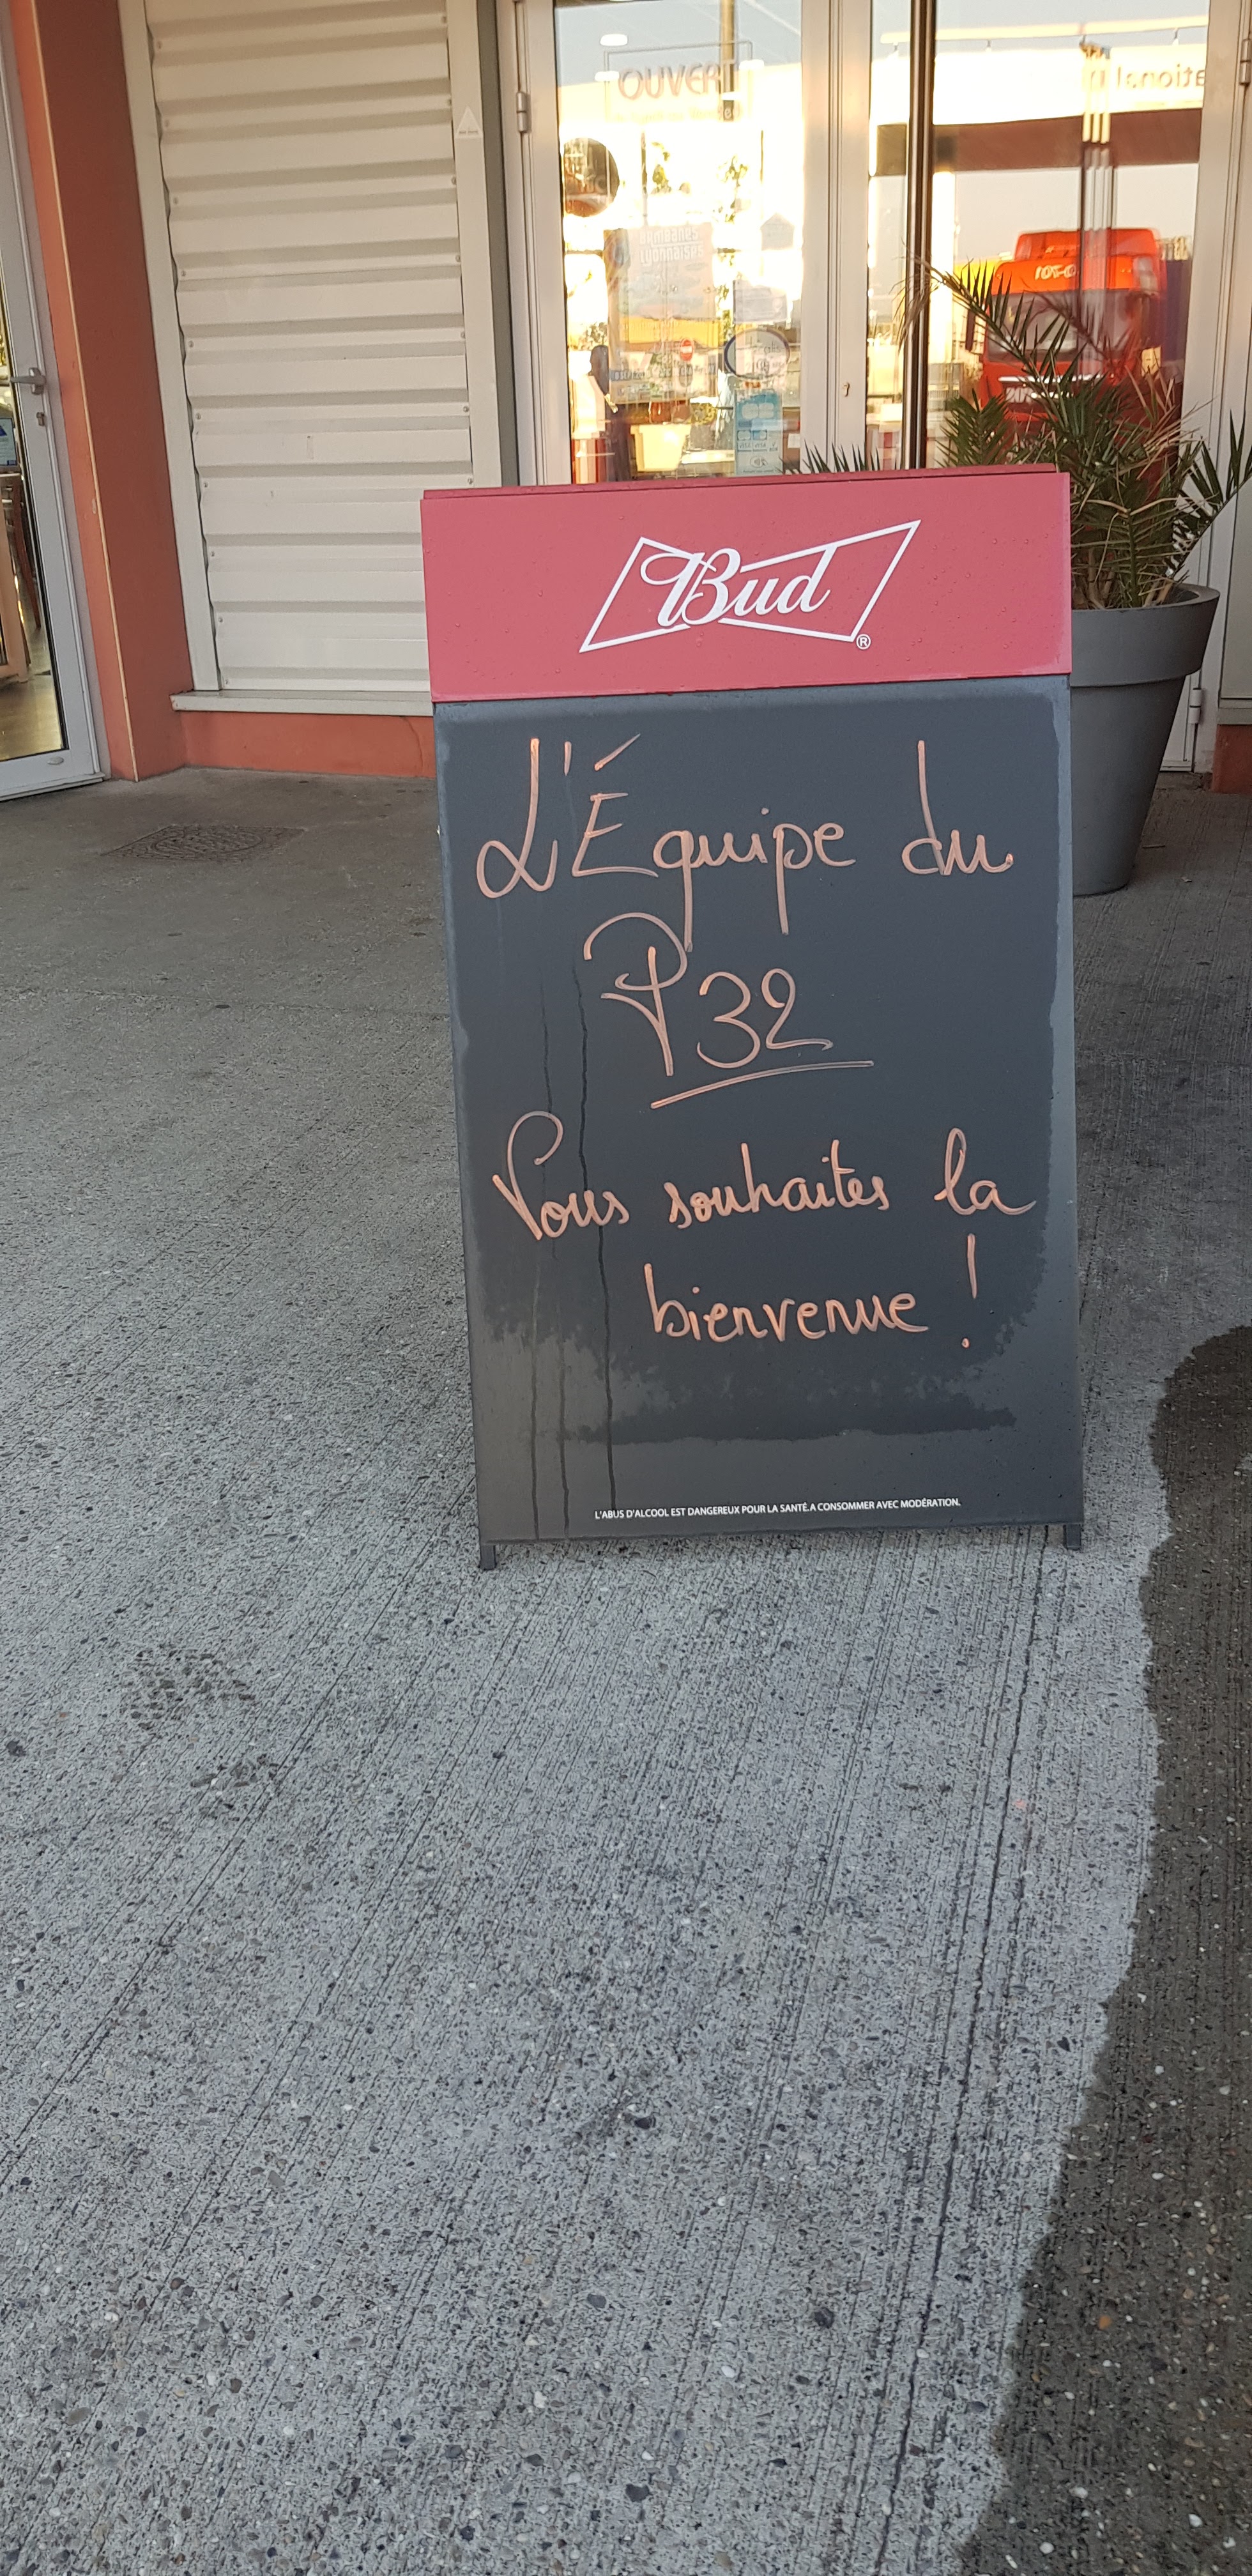 OUVERT
Bud®
L'Équipe du
P32
Vous souhaites la
bienvenue !
L'ABUS D'ALCOOL EST DANGEREUX POUR LA SANTÉ.A CONSOMMER AVEC MODÉRATION.